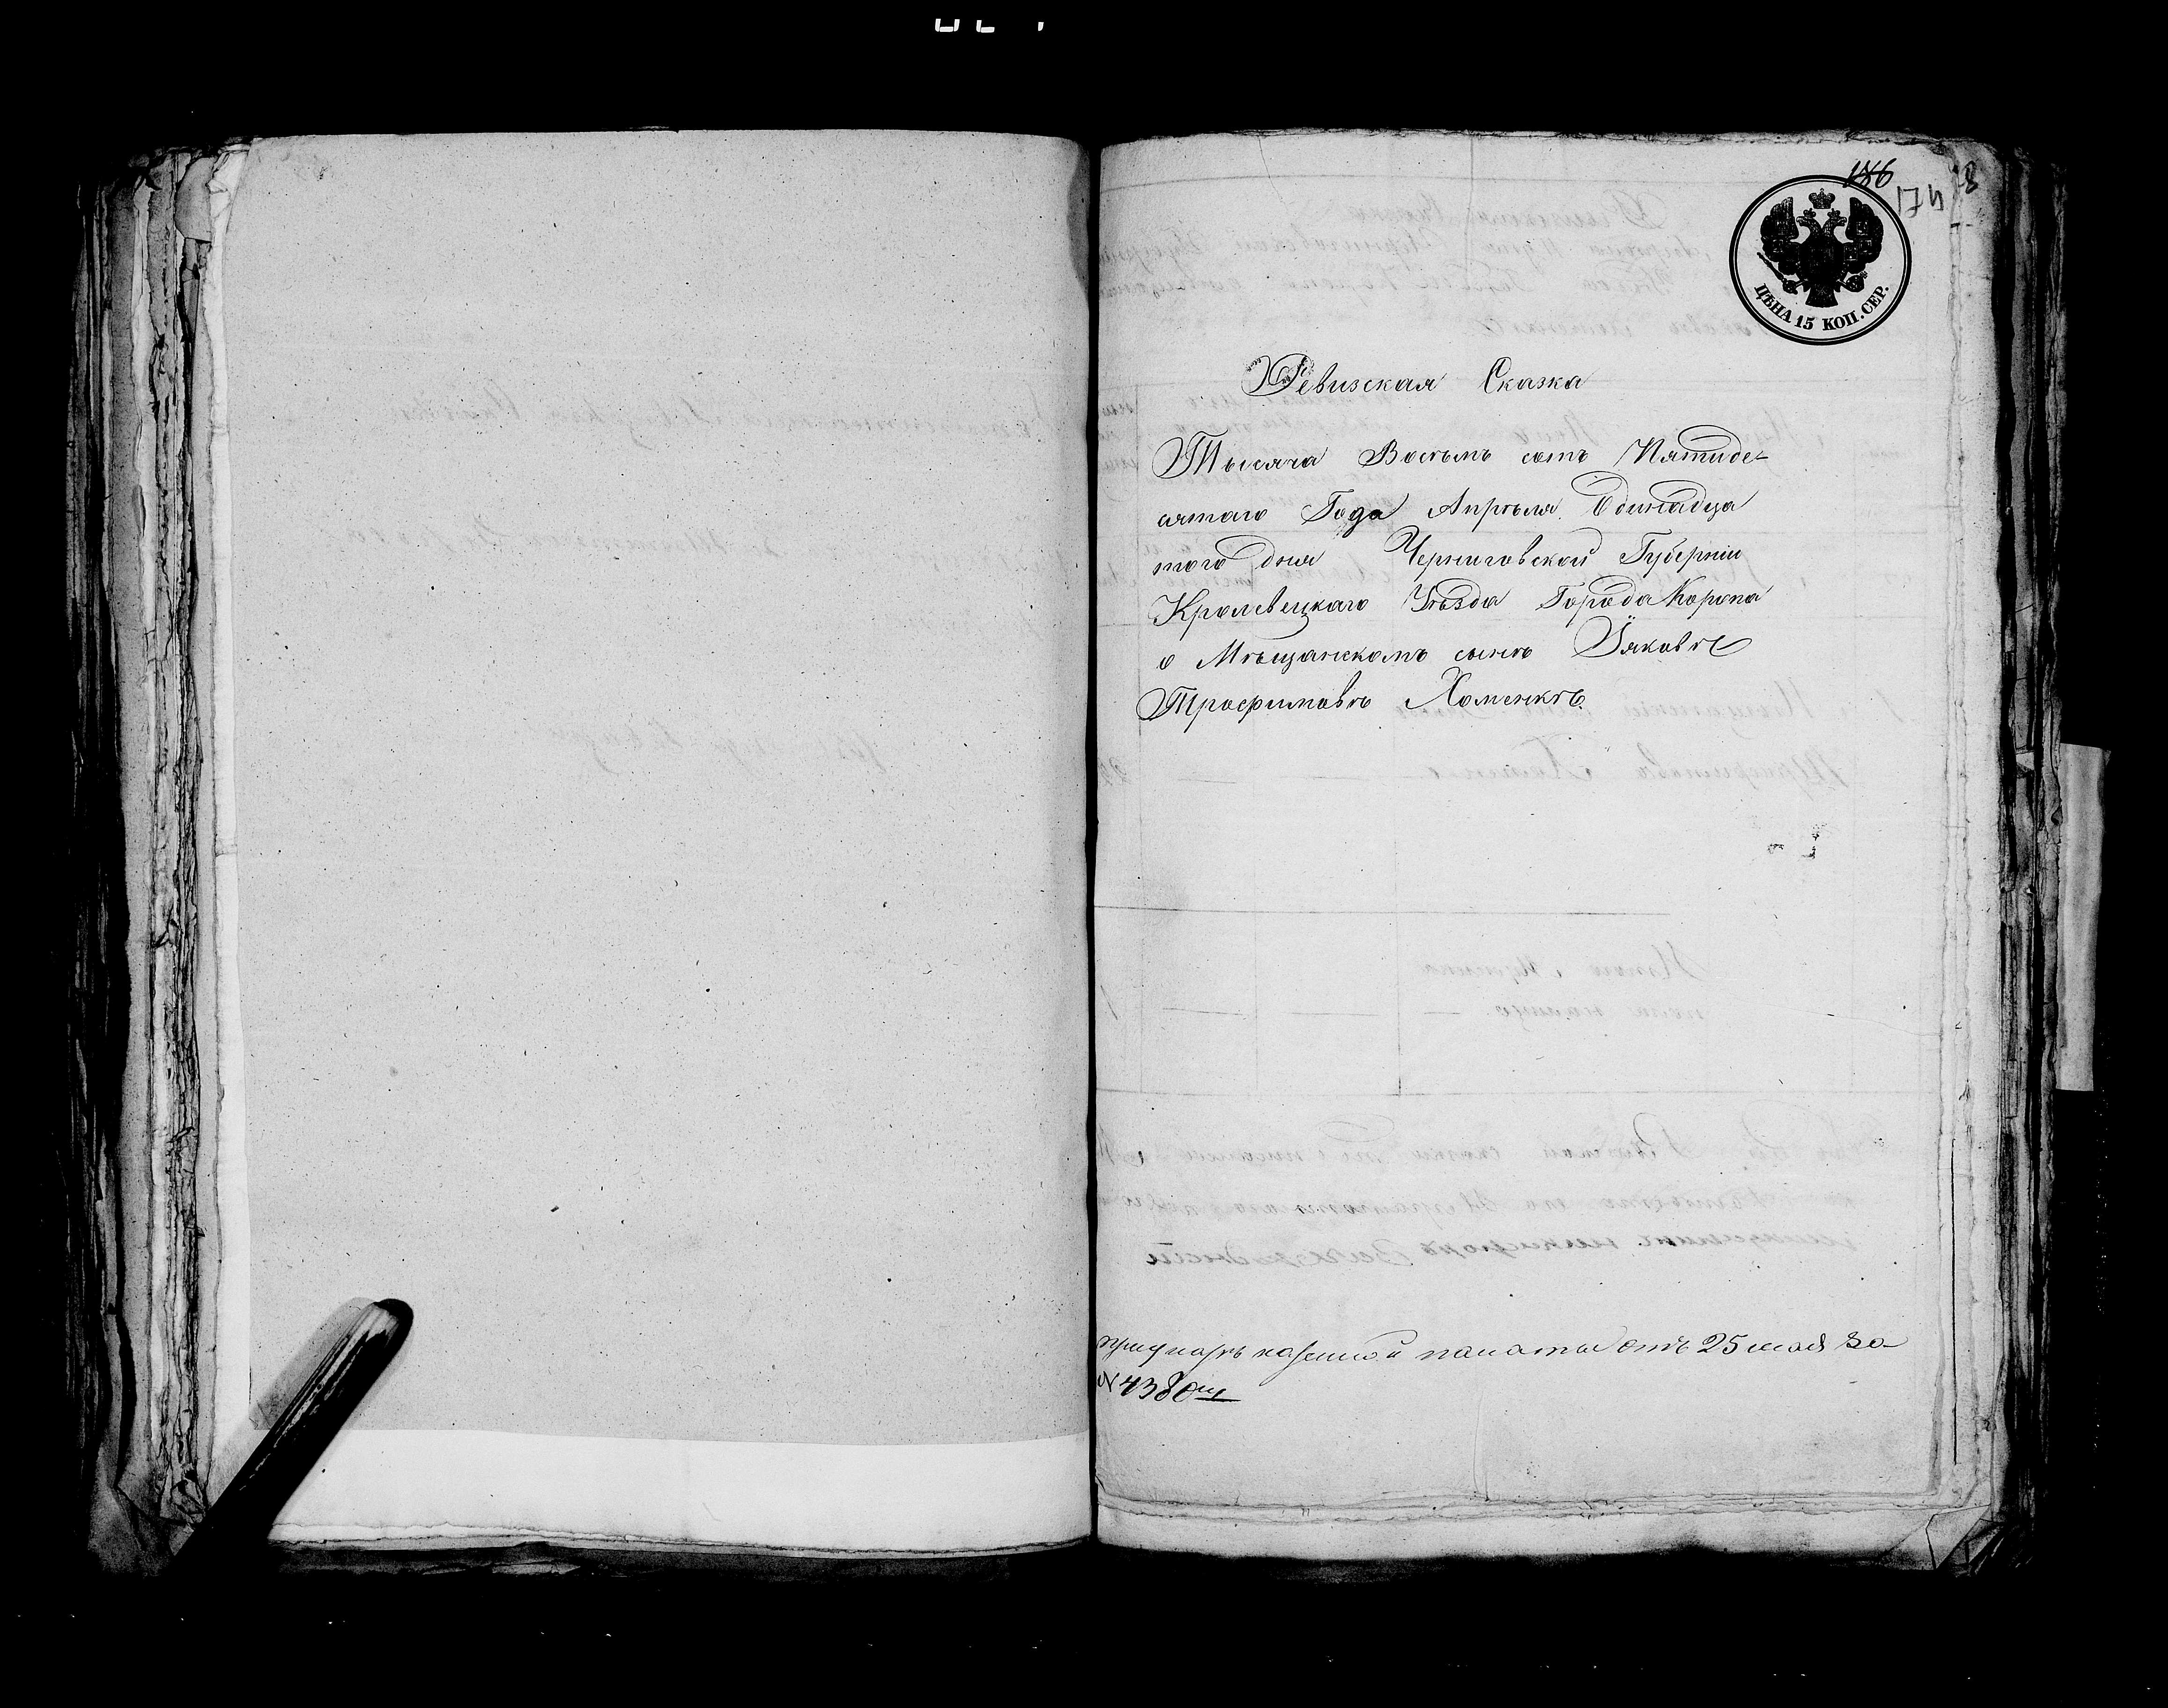 186
174
ЦѢНА 15 КОП. СЕР.
Ревизская Сказка
Тысяча Восѣмъ сотъ Пятиде-
сятаго Года Апрѣля Одинадца
того дня Черниговской Губерніи
Кролевецкаго Уѣзда Города Коропа
о Мѣщанскомъ сынѣ Іяковѣ
Трофимовѣ Хоменкѣ.
при указѣ казенной палаты отъ 25 мая за
№ 4380мъ